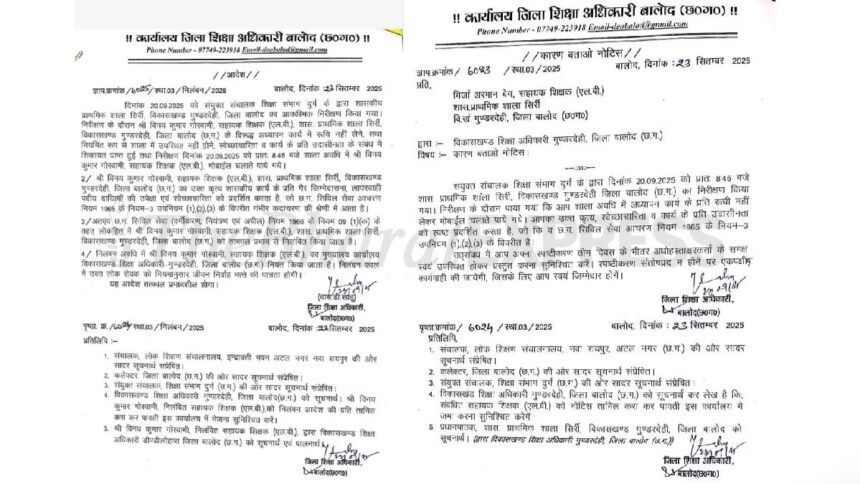 !! कार्यालय जिला शिक्षा अधिकारी बालोद (छ०ग०) !!
Phone Number - 07749-223918 Email-deobalod@gmail.com
//आदेश//
ज्ञाप.क्रमांक/6025/स्था.03/निलंबन/2025 बालोद, दिनांक :23 सितम्बर 2025
दिनांक 20.09.2025 को संयुक्त संचालक शिक्षा संभाग दुर्ग के द्वारा शासकीय
प्राथमिक शाला सिर्री, विकासखण्ड गुण्डरदेही, जिला बालोद का आकस्मिक निरीक्षण किया गया।
निरीक्षण के दौरान श्री विनय कुमार गोस्वामी, सहायक शिक्षक (एल.बी.), शास. प्राथमिक शाला सिर्री,
विकासखण्ड गुण्डरदेही, जिला बालोद (छ.ग.) के विरूद्ध अध्यापन कार्य में रूचि नहीं लेने, तथा
नियमित रूप से शाला में उपस्थित नहीं होने, स्वेच्छाचारिता व कार्य के प्रति उदासीनता के संबंध में
शिकायत प्राप्त हुई तथा निरीक्षण दिनांक 20.09.2025 को प्रातः 8.45 बजे शाला अवधि में श्री विनय
कुमार गोस्वामी, सहायक शिक्षक (एल.बी.) मोबाईल चलाते पाये गये।
2/ श्री विनय कुमार गोस्वामी, सहायक शिक्षक (एल.बी.), शास. प्राथमिक शाला सिर्री, विकासखण्ड
गुण्डरदेही, जिला बालोद (छ.ग.) का उक्त कृत्य शासकीय कार्य के प्रति गैर जिम्मेदाराना, लापरवाही
पदीय दायित्वों की उपेक्षा एवं स्वेच्छाचारिता को प्रदर्शित करता है, जो कि छ.ग. सिविल सेवा आचरण
नियम 1965 के नियम-3 उपनियम (1),(2)(3) के विपरीत गंभीर कदाचरण की श्रेणी में आता है।
3/अतएव छ.ग. सिविल सेवा (वर्गीकरण, नियंत्रण एवं अपील) नियम 1966 के नियम 09 (1)(क) के
तहत लोकहित में श्री विनय कुमार गोस्वामी, सहायक शिक्षक (एल.बी.), शास. प्राथमिक शाला सिर्री,
विकासखण्ड गुण्डरदेही, जिला बालोद (छ.ग.) को तत्काल प्रभाव से निलंबित किया जाता है।
4/ निलंबन अवधि में श्री विनय कुमार गोस्वामी, सहायक शिक्षक (एल.बी.), का मुख्यालय कार्यालय
विकासखण्ड शिक्षा अधिकारी जिला बालोद (छ.ग.) नियत किया जाता है। निलंबन काल
में उक्त लोक सेवक को नियमानुसार जीवन निर्वाह भत्ते की पात्रता होगी।
यह आदेश तत्काल प्रभावशील होगा।
जिला शिक्षा अधिकारी,
बालोद(छ०ग०)
पृष्ठा. क्र./6026/स्था.03/निलंबन/2025 बालोद, दिनांक :23 सितम्बर 2025
प्रतिलिपि :-
1. संचालक, लोक शिक्षण संचालनालय, इन्द्रावती भवन अटल नगर नवा रायपुर की ओर
सादर सूचनार्थ संप्रेषित।
2. कलेक्टर, जिला बालोद (छ.ग.) की ओर सादर सूचनार्थ संप्रेषित।
3. संयुक्त संचालक, शिक्षा संभाग दुर्ग (छ.ग.) की ओर सादर सूचनार्थ संप्रेषित।
4. विकासखण्ड शिक्षा अधिकारी गुण्डरदेही, जिला बालोद(छ.ग.) को सूचनार्थ। श्री विनय
कुमार गोस्वामी, निलंबित सहायक शिक्षक (एल.बी.)को निलंबन आदेश की प्रति तामिल
करा कर पावती इस कार्यालय में भेजना सुनिश्चित करें।
5. श्री विनय कुमार गोस्वामी, निलंबित सहायक शिक्षक (एल.बी.), द्वारा विकासखण्ड शिक्षा
अधिकारी डौण्डीलोहारा जिला बालोद (छ.ग.) को सूचनार्थ एवं पालनार्थ।
जिला शिक्षा अधिकारी,
बालोद(छ०ग०)
!! कार्यालय जिला शिक्षा अधिकारी बालोद (छ०ग०) !!
Phone Number - 07749-223918 Email-deobalod@gmail.com
//कारण बताओ नोटिस//
ज्ञाप.क्रमांक/6023/स्था.03/2025 बालोद, दिनांक :23 सितम्बर 2025
प्रति,
मिर्जा अरमान बेग, सहायक शिक्षक (एल.बी.)
शास.प्राथमिक शाला सिर्री
वि.खं गुण्डरदेही, जिला बालोद(छ.ग.)
द्वारा :- विकासखण्ड शिक्षा अधिकारी गुण्डरदेही, जिला बालोद (छ.ग.)
विषय :- कारण बताओ नोटिस।
-00-
संयुक्त संचालक शिक्षा संभाग दुर्ग के द्वारा दिनांक 20.09.2025 को प्रातः 8.45 बजे
शास. प्राथमिक शाला सिर्री, विकासखण्ड गुण्डरदेही जिला बालोद (छ.ग.) का निरीक्षण किया
गया। निरीक्षण के दौरान पाया गया कि आप शाला अवधि में अध्यापन कार्य के प्रति रूचि नहीं
लेकर मोबाईल चलाते पाये गये। आपका उक्त कृत्य, स्वेच्छाचारिता व कार्य के प्रति उदासीनता
को स्पष्ट प्रदर्शित करता है, जो कि छ.ग. सिविल सेवा आचरण नियम 1965 के नियम-3
उपनियम (1),(2)(3) के विपरीत है।
तत्संबंध में आप अपना स्पष्टीकरण तीन दिवस के भीतर अधोहस्ताक्षरकर्ता के समक्ष
स्वयं उपस्थित होकर प्रस्तुत करना सुनिश्चित करें। स्पष्टीकरण संतोषप्रद न होने पर एकपक्षीय
कार्यवाही की जायेगी, जिसके लिए आप स्वयं जिम्मेदार होंगे।
जिला शिक्षा अधिकारी,
बालोद(छ०ग०)
पृष्ठा क्रमांक/6024/स्था.03/2025 बालोद, दिनांक :23 सितम्बर 2025
प्रतिलिपि,
1. संचालक, लोक शिक्षण संचालनालय, नवा रायपुर, अटल नगर (छ.ग.) की ओर सादर
सूचनार्थ संप्रेषित।
2. कलेक्टर, जिला बालोद (छ.ग.) की ओर सादर सूचनार्थ संप्रेषित।
3. संयुक्त संचालक, शिक्षा संभाग दुर्ग (छ.ग.) की ओर सादर सूचनार्थ संप्रेषित।
4. विकासखंड शिक्षा अधिकारी गुण्डरदेही, जिला बालोद (छ.ग.) को सूचनार्थ कर लेख है कि,
संबंधित सहायक शिक्षक (एल.बी.) को नोटिस तामिल करा कर पावती इस कार्यालय में
जमा करना सुनिश्चित करेगें
5. प्रधानपाठक, शास. प्राथमिक शाला सिर्री, विकासखण्ड गुण्डरदेही, जिला बालोद को
सूचनार्थ। (द्वारा विकासखण्ड शिक्षा अधिकारी गुण्डरदेही, जिला बालोद (छ.ग.))
जिला शिक्षा अधिकारी,
बालोद(छ०ग०)